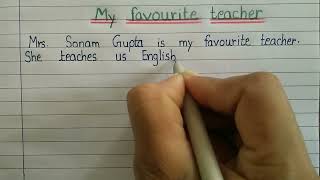 My favourite teacher
Mrs. Sonam Gupta is my favourite teacher.
She teaches us English